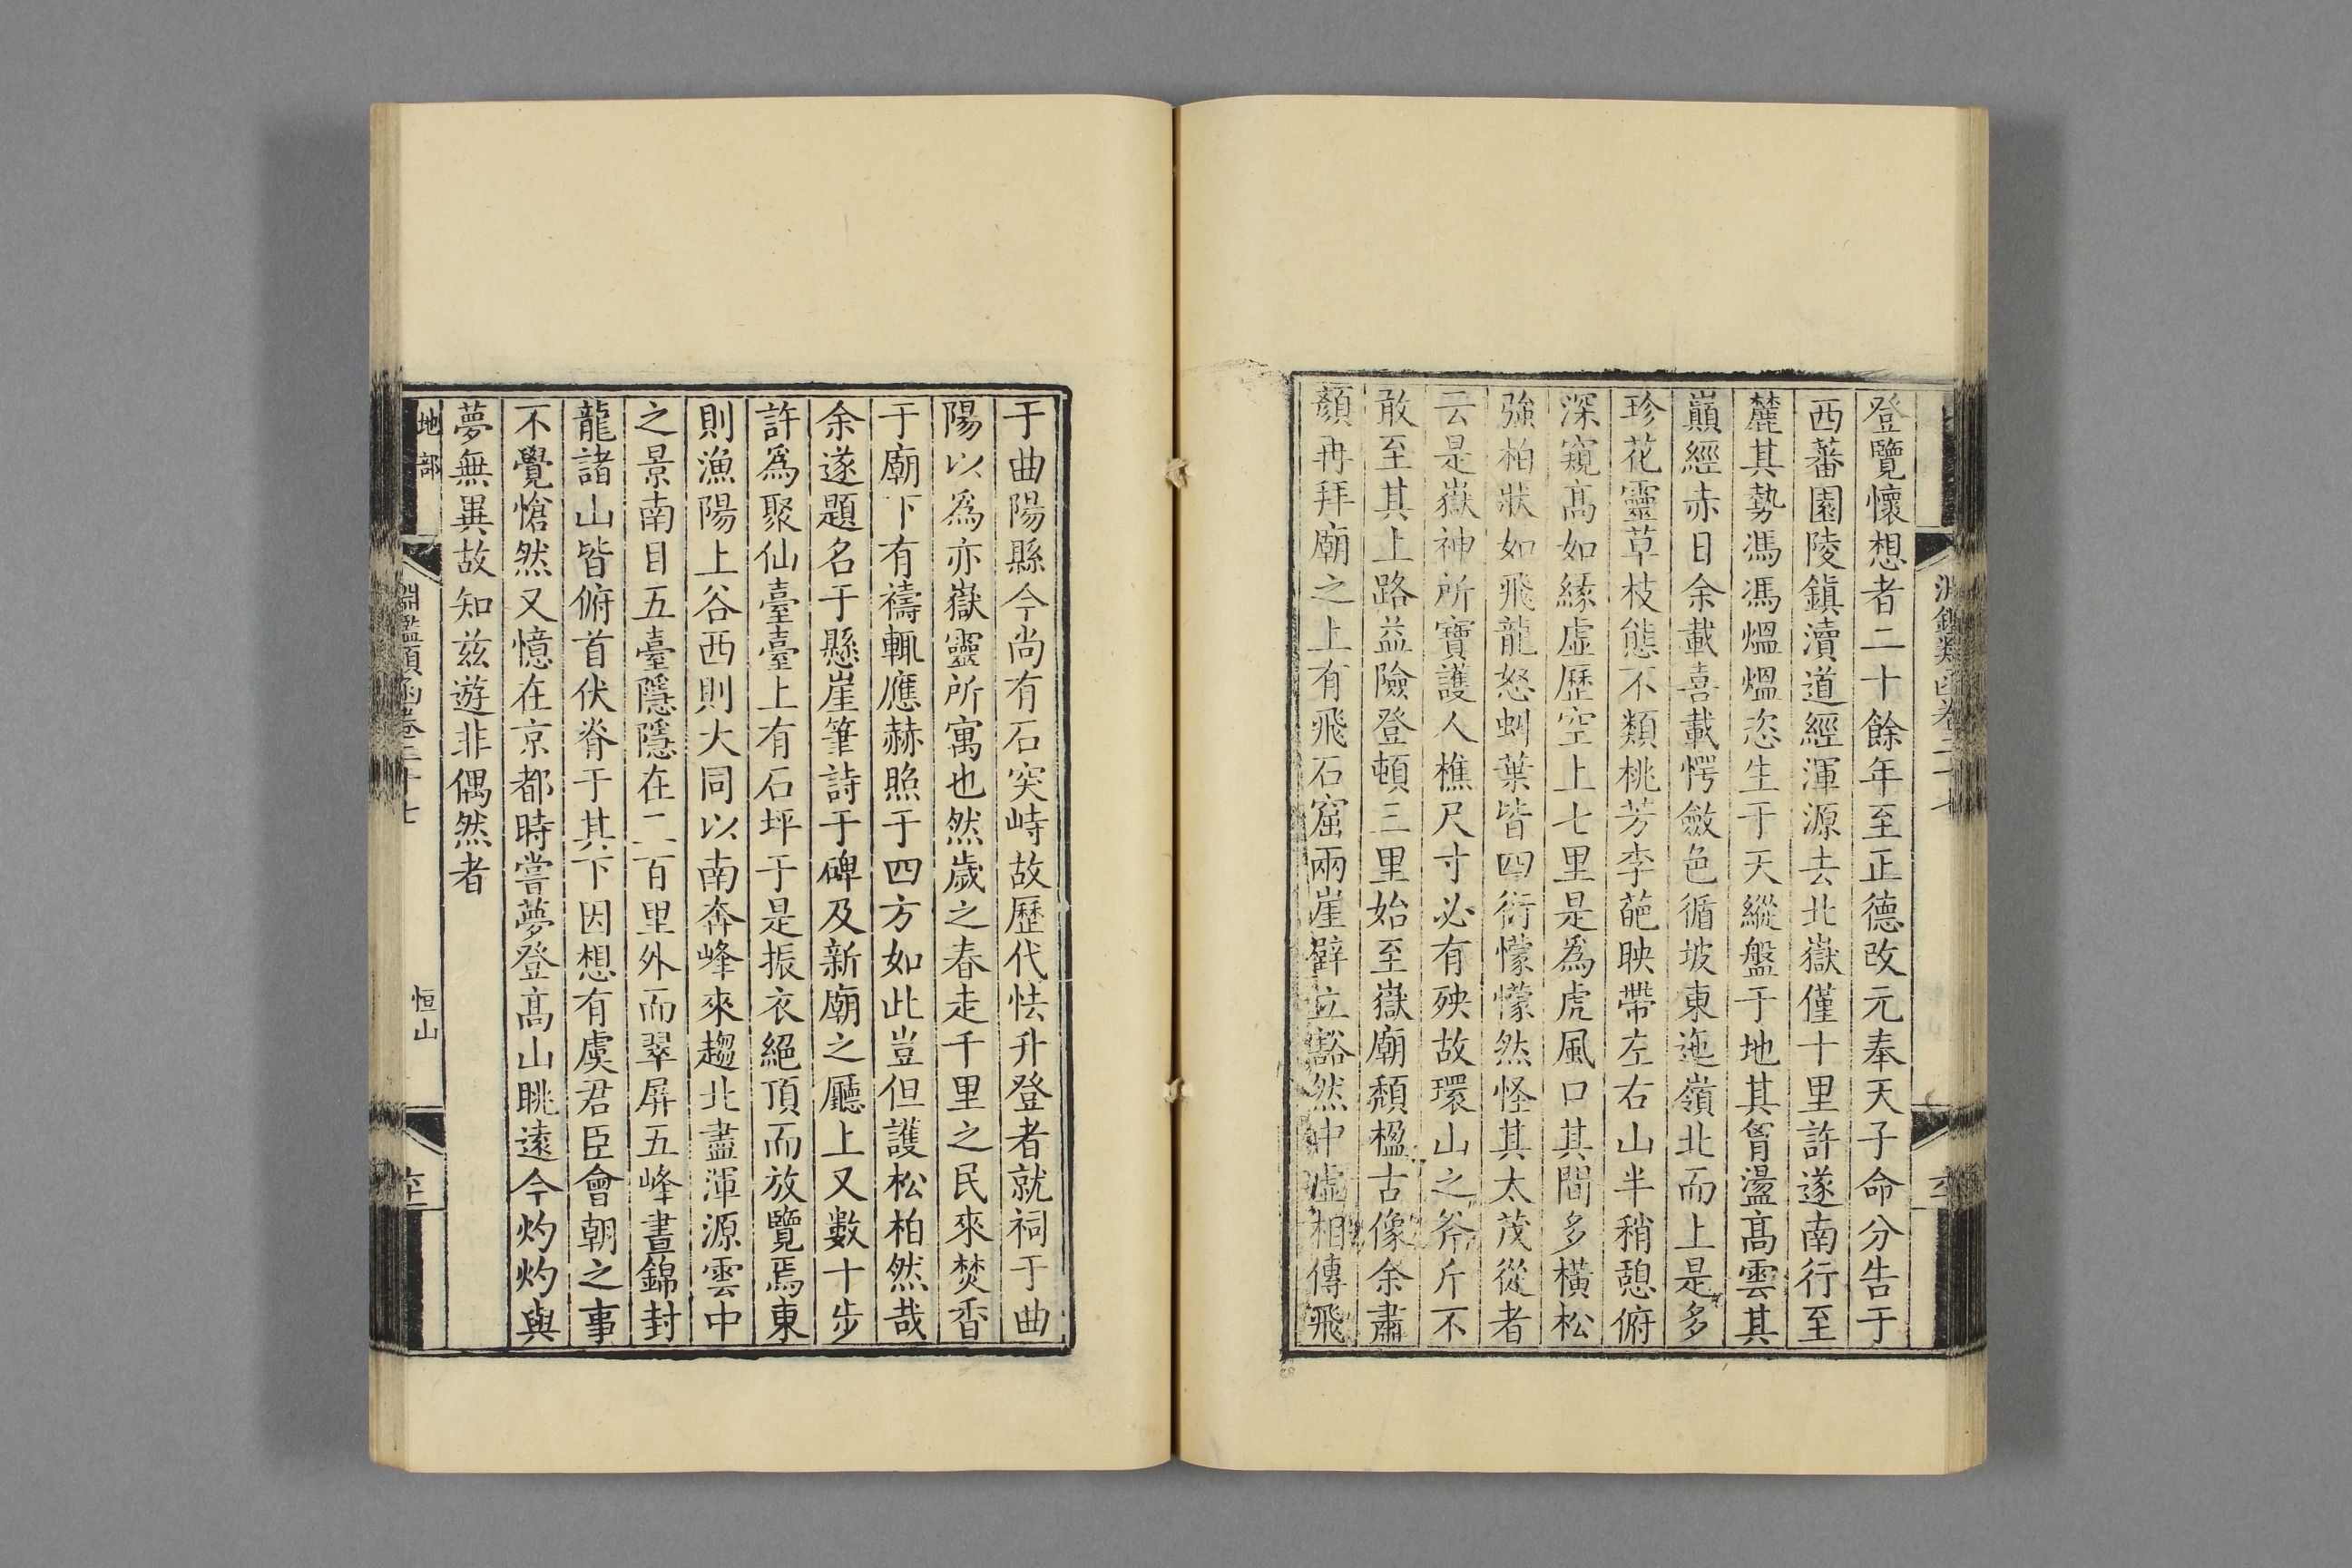 登覽懷想者二十餘年至正德改元奉天子命分告于
西蕃園陵鎮瀆道經渾源去北嶽僅十里許遂南行至
麓其勢馮馮熅熅恣生于天縱盤于地其胷盪高雲其
巔經赤日余載喜載愕斂色循坡東迤嶺北而上是多
珍花靈草枝態不類桃芳李葩映帶左右山半稍憩俯
深窺高如緣虛歷空上七里是爲虎風口其間多橫松
強柏狀如飛龍怒虯葉皆四衍懞懞然怪其太茂從者
云是嶽神所寶護人樵尺寸必有殃故環山之斧斤不
敢至其上路益險登頓三里始至嶽廟頹楹古像余肅
顏再拜廟之上有飛石窟兩崖壁立豁然中虛相傳飛
于曲陽縣今尚有石突峙故歷代怯升登者就祠于曲
陽以爲亦嶽靈所寓也然歲之春走千里之民來焚香
于廟下有禱輒應赫照于四方如此豈但護松柏然哉
余遂題名于懸崖筆詩于碑及新廟之廳上又數十步
許爲聚仙臺臺上有石坪于是振衣絕頂而放覽焉東
則漁陽上谷西則大同以南奔峰來趨北盡渾源雲中
之景南目五臺隱隱在二百里外而翠屏五峰畫錦封
龍諸山皆俯首伏脊于其下因想有虞君臣會朝之事
不覺愴然又憶在京都時嘗夢登高山眺遠今灼灼與
夢無異故知茲遊非偶然者
地部
淵鑑類函卷二十七
恒山